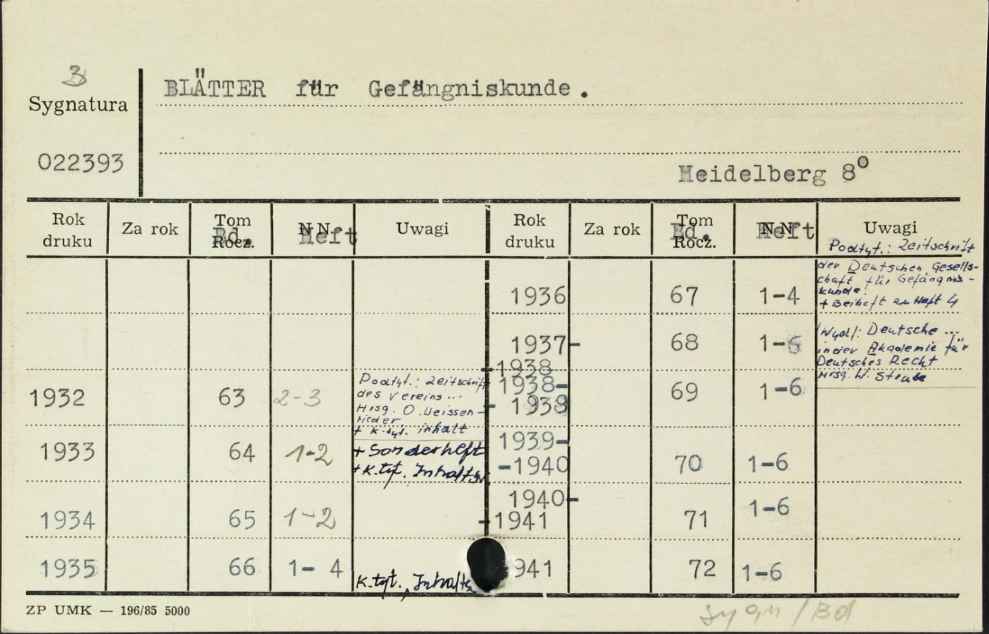 3
Sygnatura
022393
BLÄTTER für Gefängniskunde.
Heidelberg 8°
Rok druku Za rok Tom Rocz. Bd. NN Heft Uwagi Rok druku Za rok Tom Rocz. Bd. NN Heft Uwagi
Podtyt.: Zeitschrift
der Deutschen Gesells-
chaft für Gefängnis-
kunde.
+ Beiheft zu Heft 4
1936 67 1-4
Wyd.: Deutsche ...
in der Akademie für
Deutsches Recht
Hrsg. W. Strube
1937- 68 1-6
-1938
1932 63 2-3
Podtyt.: Zeitschrift
des Vereins ...
Hrsg. O. Weissen-
rieder
+ K. tyt. inhalt
1938-
- 1939 69 1-6
1933 64 1-2
+ Sonderheft
+ K. tyt., Inhalts
1939-
-1940 70 1-6
1934 65 1-2
1940-
-1941 71 1-6
1935 66 1- 4
K. tyt., Inhalts
1941 72 1-6
ZP UMK — 196/85 5000
Sygn/Bd